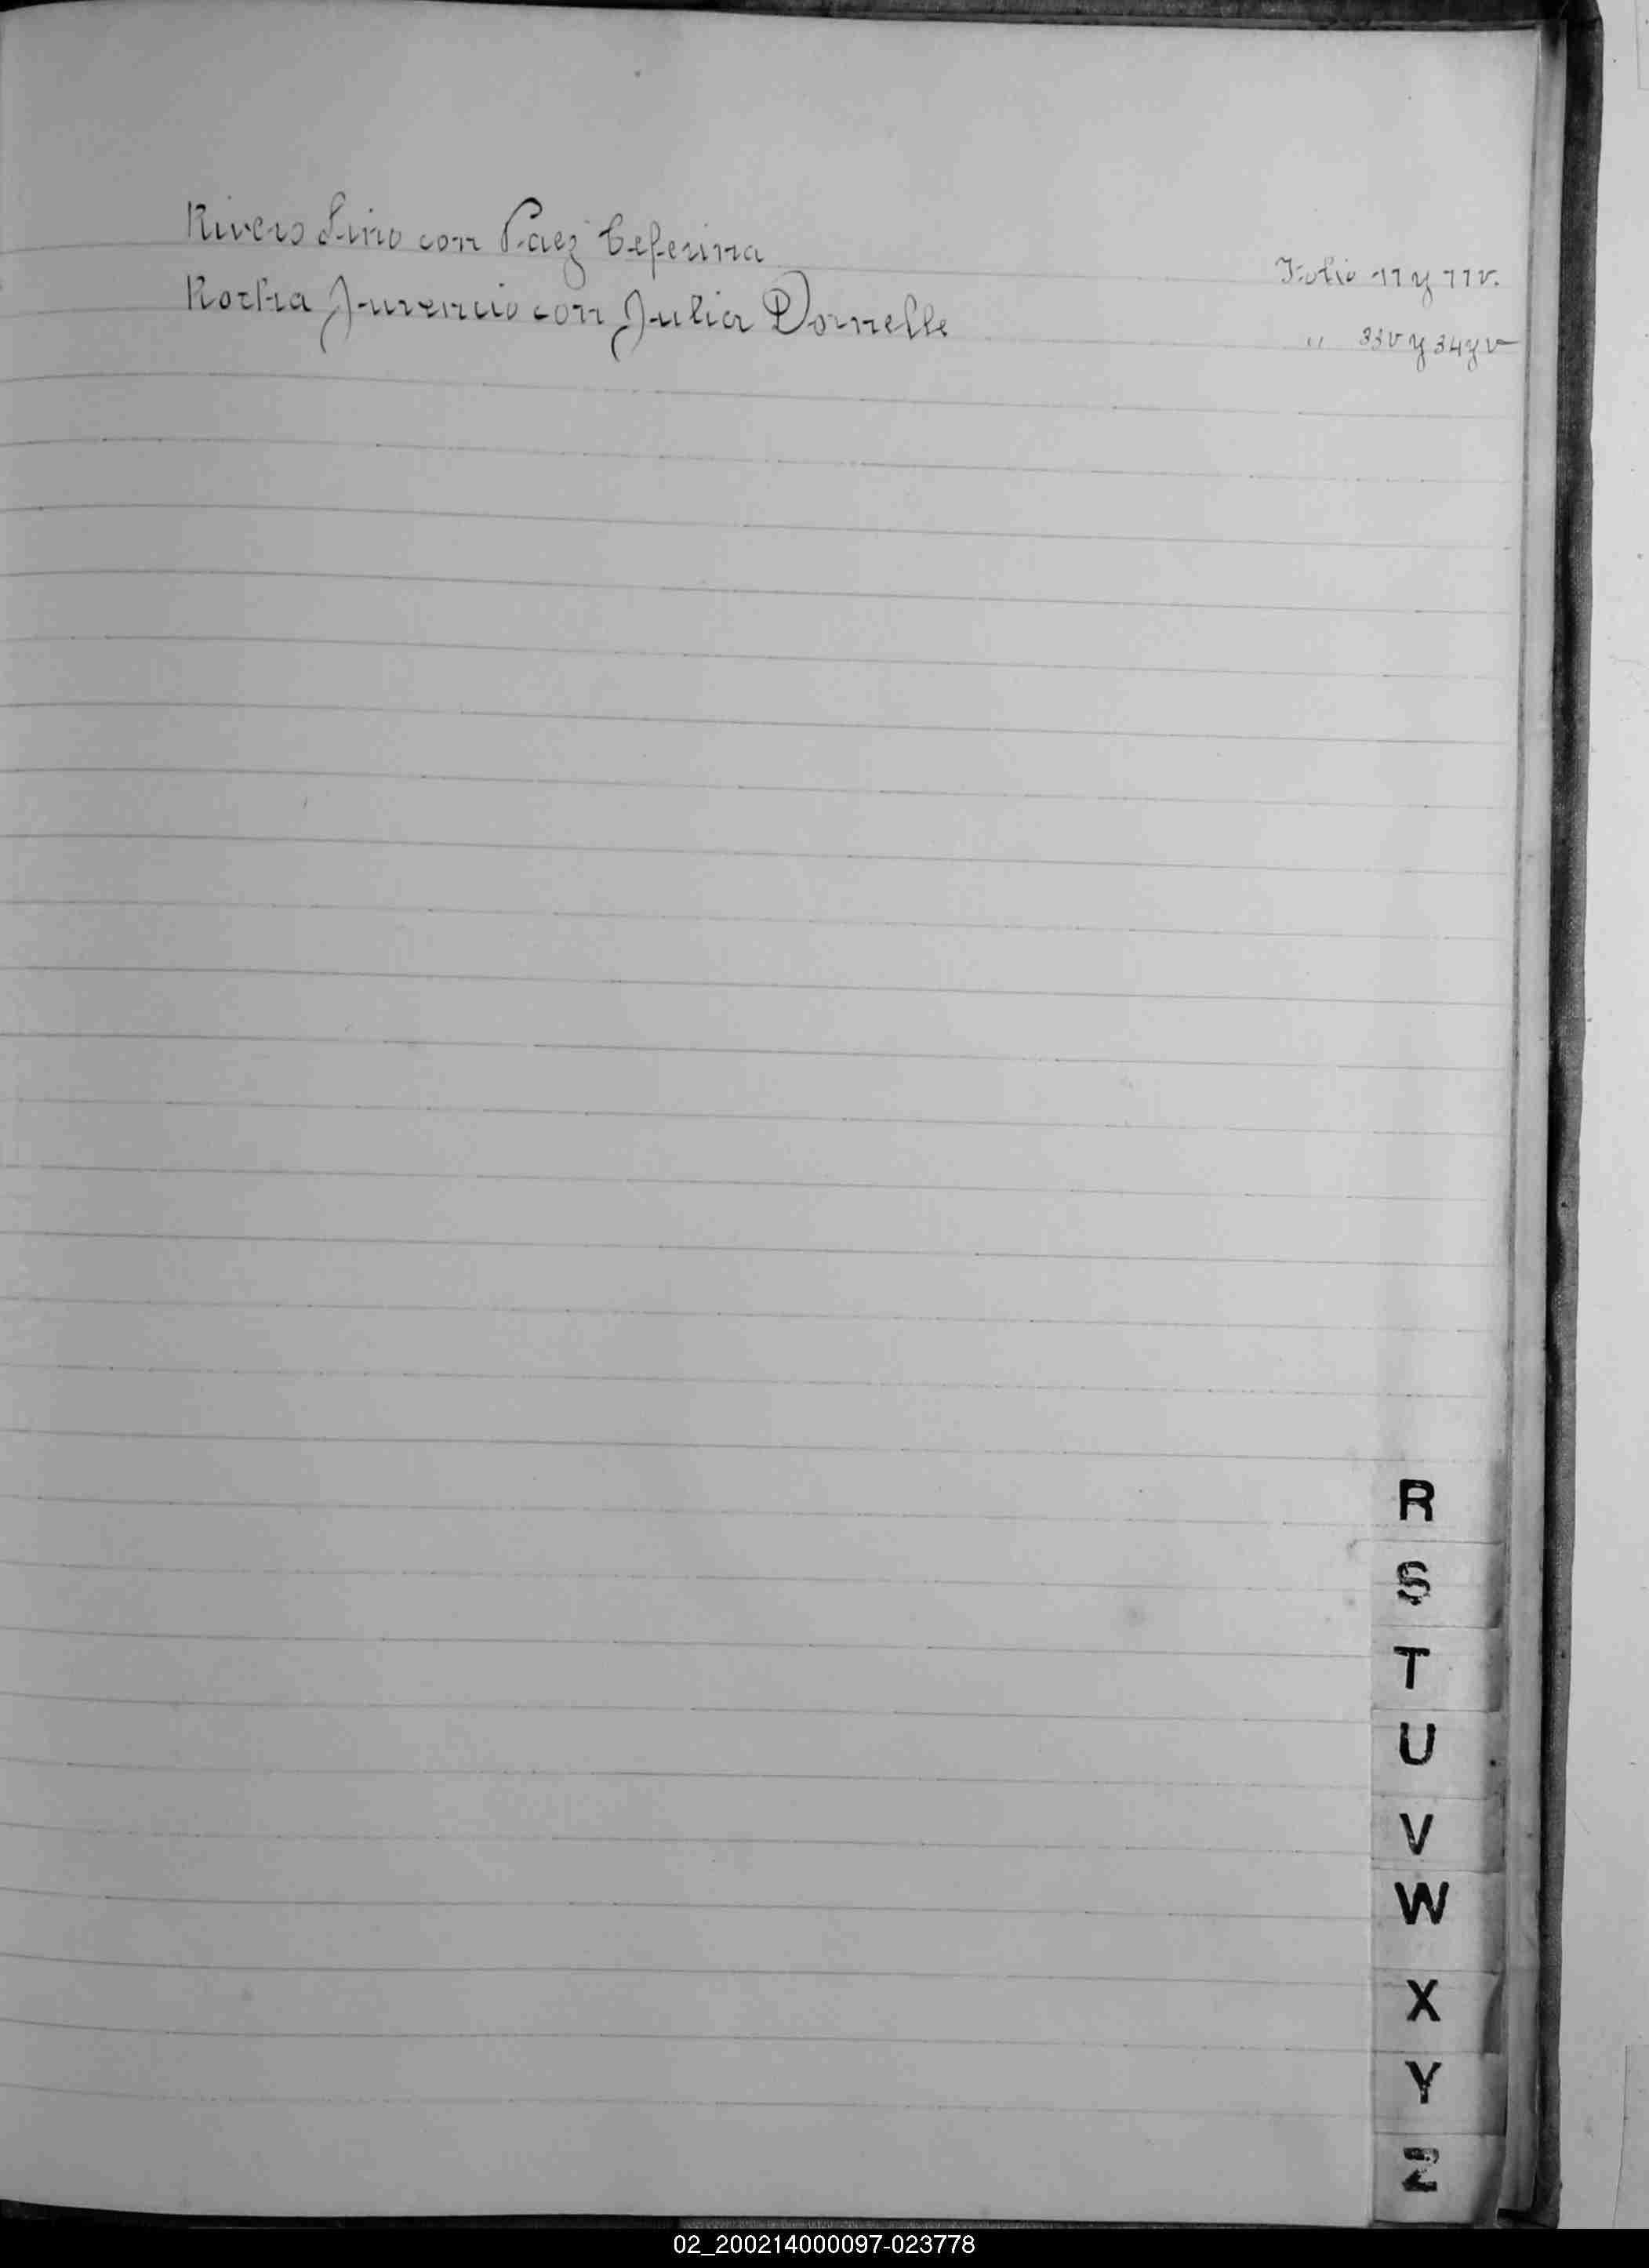 Rivero Lino con Paez Ceferina Folio 11 y 11 v.
Rocha Juvencio con Julia Dornelle " 33v y 34 y v
R
S
T
U
V
W
X
Y
Z
02_200214000097-023778